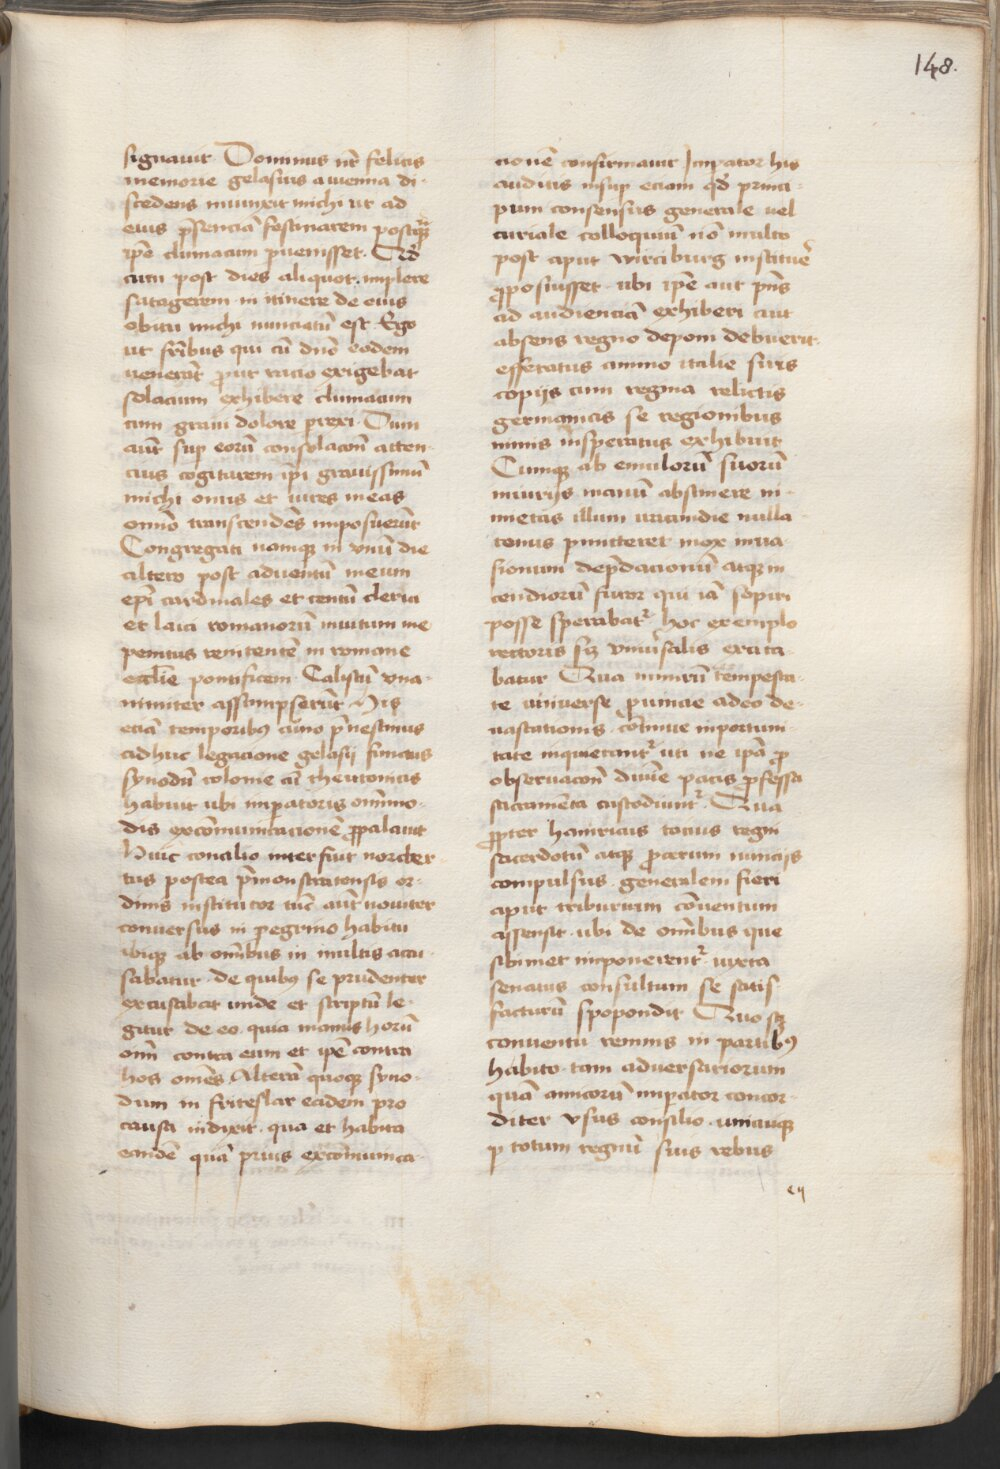 148.
signauit Dominus nr̄ felicis
memorie gelasius a uienna di-
scedens iniunxit michi ut ad
eius p̄senciā festinarem postq̄ꝫ
ip̄e cluniacum ꝑuenisset. Qd̄
cum post dies aliquot implere
satagerem in itinere de eius
obitu michi nunciatū est. Ego
ut fr̄ibus qui cū dn̄o eodem
uenerāt ꝓut racio exigebat
solacium exhibere cluniacum
cum graui dolore ꝑrexi. Dum
aūt suꝑ eorū consolacōn̄ atten-
cius cogitarem ip̄i grauissimū
michi onus et uires meas
om̄ino transcendēs imposuerūt
Congregati namqꝫ in vnū die
altero post aduentū meum
ep̄i cardinales et centū clerici
et laici romanorū inuitum me
penitus renitentē in romane
eccl̄ie pontificem Calistū vna-
nimiter assumpserūt His
eciā temporibꝰ cuno p̄nestinus
adhuc legacione gelasij functus
synodū colonie cū theutonicis
habuit ubi imꝑatoris om̄imo-
dis excōmunicacionē ꝓpalauit
Huic concilio interfuit norber
tus postea p̄monstratensis or-
dinis institutor tūc aūt nouiter
conuersus in ꝑegrino habitu
ibiqꝫ ab om̄ibus in multis accu-
sabatur. de quibꝰ se prudenter
excusabat unde et scriptū le-
gitur de eo. quia manus horū
om̄i contra eum et ip̄e contra
hos om̄es Alterā quoqꝫ syno-
dum in friteslar eadem pro
causa indixit. qua et habita
eandē quā prius excōmunica-
cionē confirmauit Imꝑator his
auditis insuꝑ eciam qd̄ princi-
pum consensus generale uel
curiale colloquiū nō multo
post aput wirciburg instituē
ꝓposuisset. ubi ip̄e aut p̄ns
ad audienciā exhiberi aut
absens regno deponi debuerit.
efferatus animo italie suis
copijs cum regina relictis
germanicis se regionibus
nimis insperatus exhibuit
Cumqꝫ ab emulorū suorū
iniurijs manū abstinere ni-
metas illum uicindie nulla
tenus ꝑmitteret mox inua-
sionum dep̄dacionū atqꝫ in
cendiorū furor qui iā sopiri
posse sperabatᷣ hoc exemplo
rectoris sꝫ vniūsalis excita-
batur Qua nimirū tempesta-
te uniuerse ꝓuincie adeo de-
uastationis cōtinue inportuni
tate inquietantᷣ uti ne ip̄a ꝓ
obseruacōn̄ diuīe pacis ꝓfessa
sacramēta custodiuntᷣ. Qua
ꝓpter hainricus tocius regni
sacerdotū atqꝫ ꝓcerum nuncijs
compulsus. generalem fieri
aput triburium cōuentum
assensit. ubi de om̄ibus que
sibimet imponerentᷣ iuxta
senatus consultum se satis
facturū spopondit Quo sꝫ
conuentu remnis in partibꝰ
habito. tam aduersariorum
quā amicorū imꝑator concor-
diter vsus consilio. uniuicqꝫ
ꝑ totum regnū suis rebus
eij